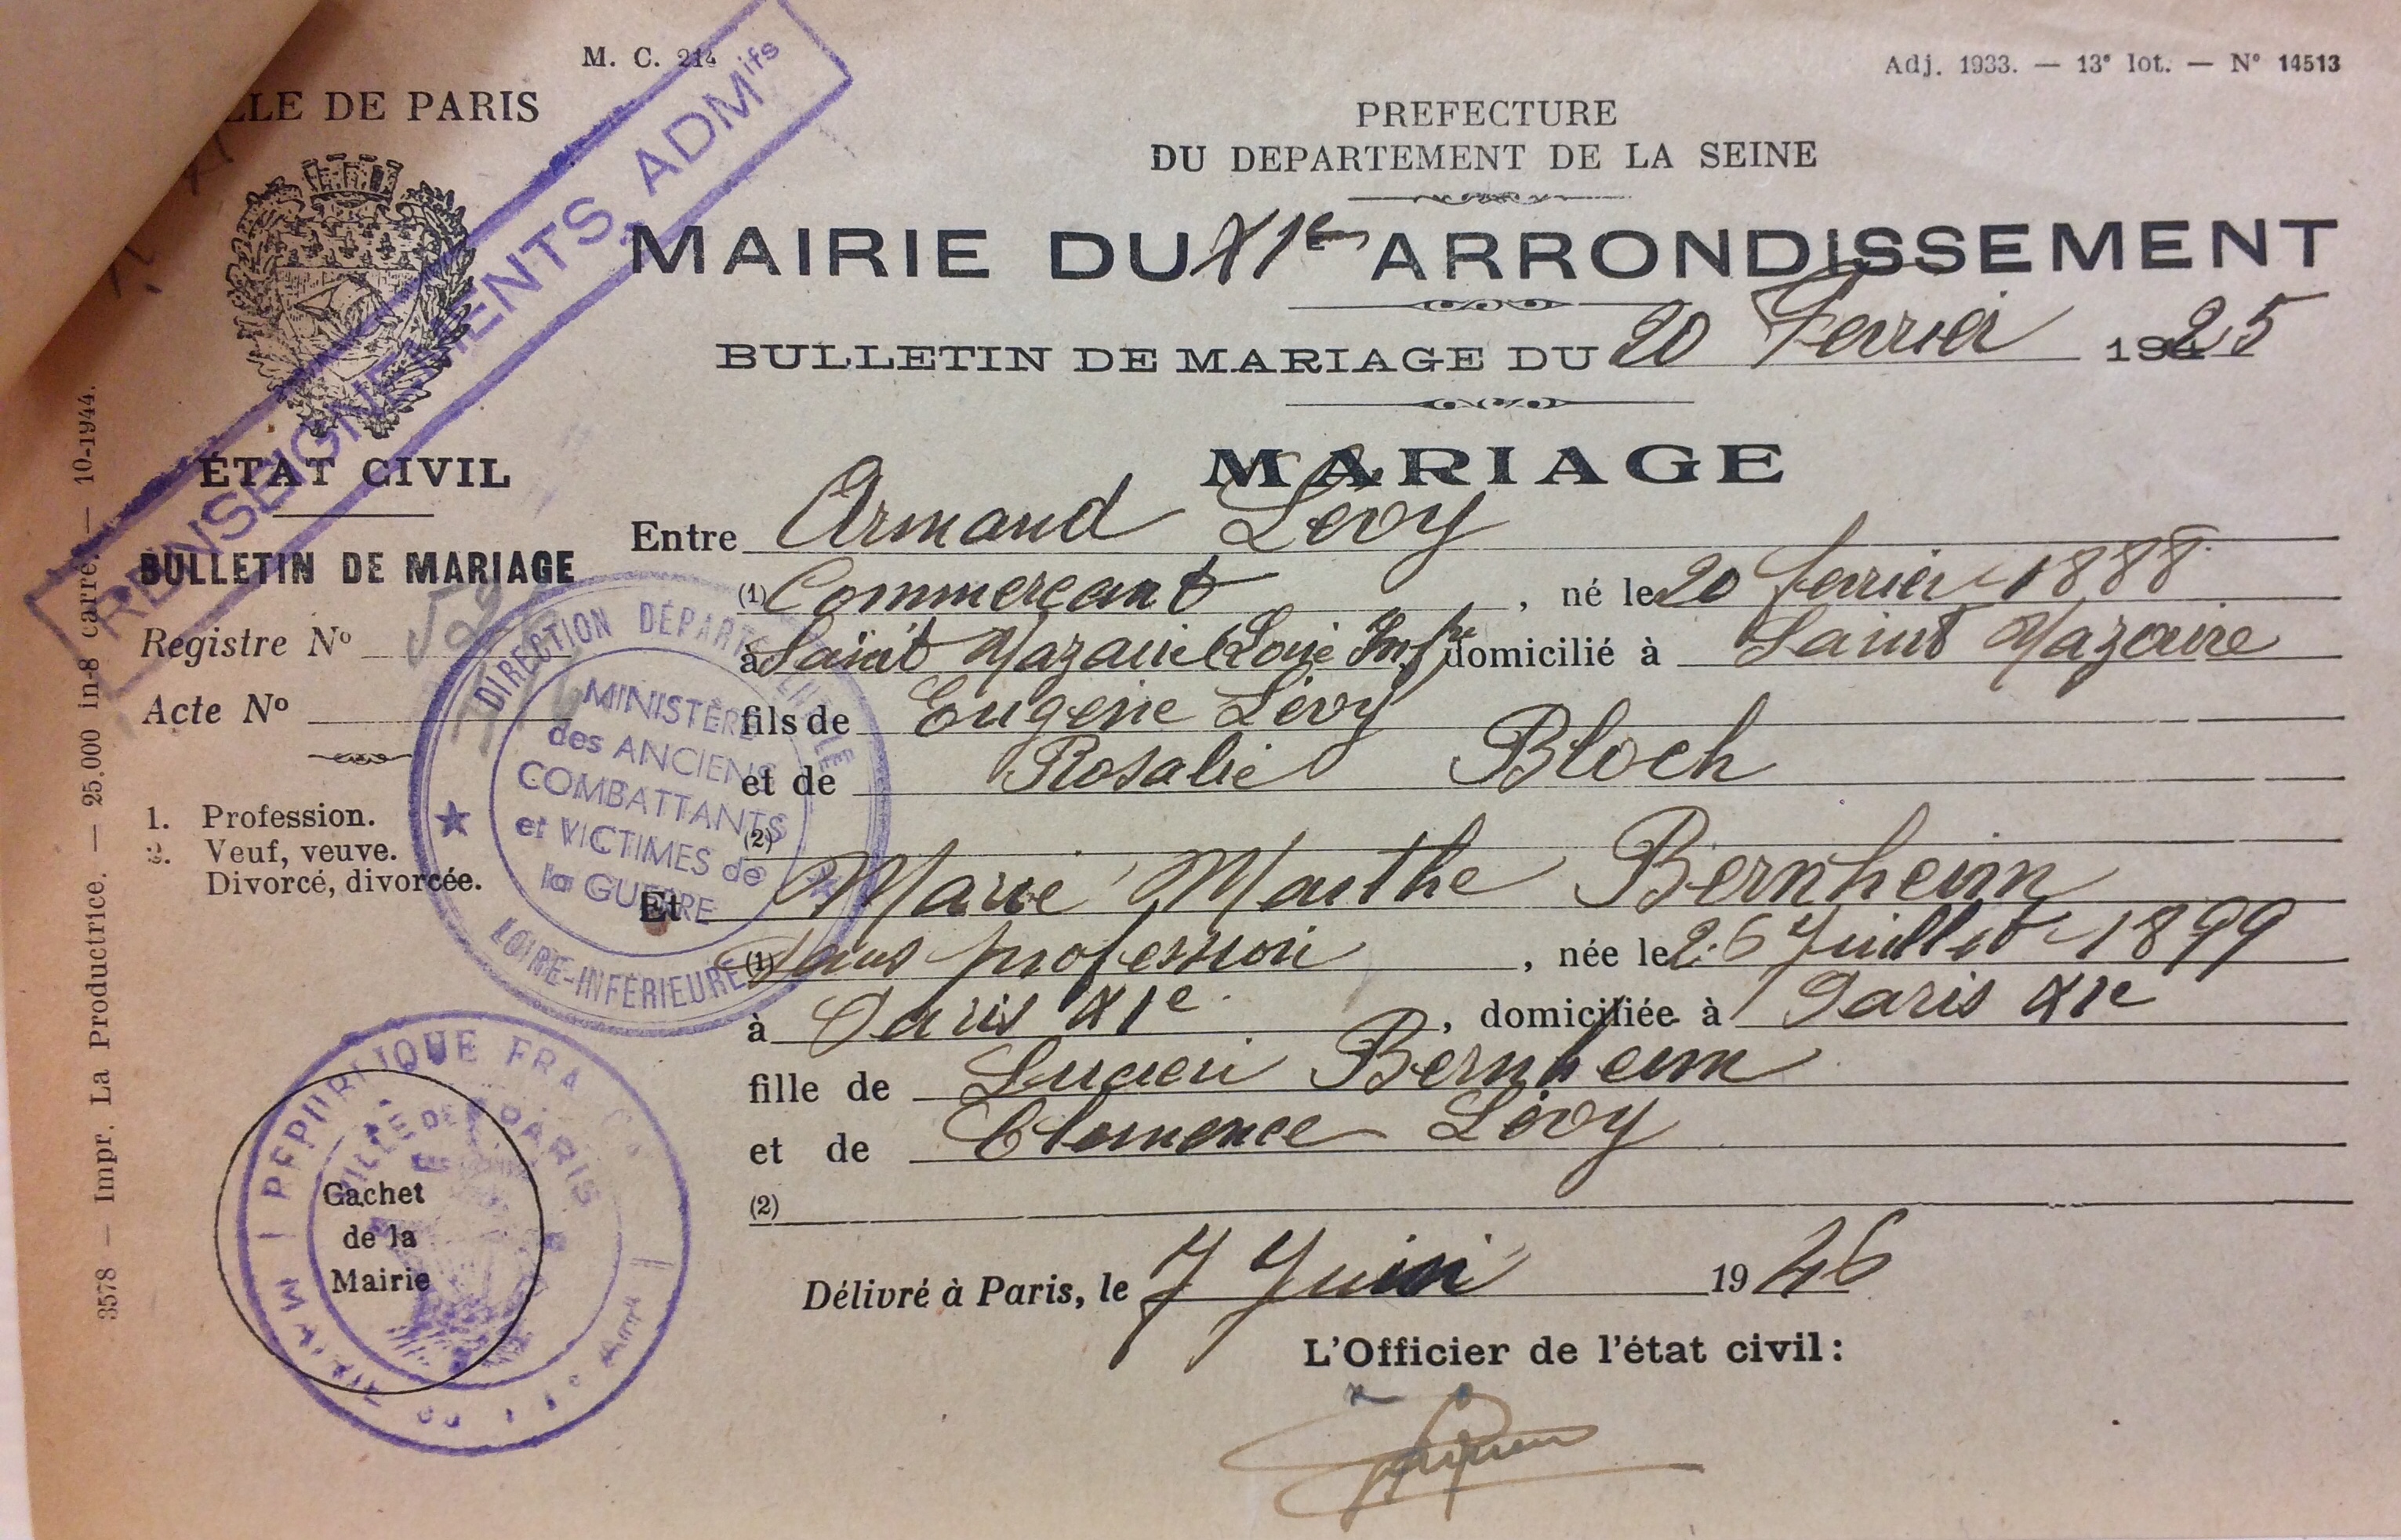 M. C. 214
Adj. 1933. — 13e lot. — N° 14513
LLE DE PARIS
PREFECTURE
DU DEPARTEMENT DE LA SEINE
RENSEIGNEMENTS ADMifs
MAIRIE DU XIe ARRONDISSEMENT
BULLETIN DE MARIAGE DU 20 Fevrier 1925
ÉTAT CIVIL
MARIAGE
BULLETIN DE MARIAGE
Registre No
Acte No
1. Profession.
2. Veuf, veuve.
Divorcé, divorcée.
Entre Armand Levy
(1) Commerçant, né le 20 fevrier 1888
à Saint Nazaire (Loire Infre domicilié à Saint Nazaire
fils de Eugene Levy
et de Rosalie Bloch
(2)
Et Marie Marthe Bernheim
(1) Sans profession, née le 26 Juillet 1899
à Paris XIe, domiciliée à Paris XIe
fille de Lucien Bernheim
et de Clemence Levy
(2)
Délivré à Paris, le 7 Juin 1946
L'Officier de l'état civil:
DIRECTION DÉPARTEMENTALE
MINISTÈRE
des ANCIENS
COMBATTANTS
et VICTIMES de
la GUERRE
LOIRE-INFÉRIEURE
REPUBLIQUE FRANCA
VILLE DE PARIS
Cachet
de la
Mairie
3578 — Impr. La Productrice. — 25.000 in-8 carré. — 10-1944.